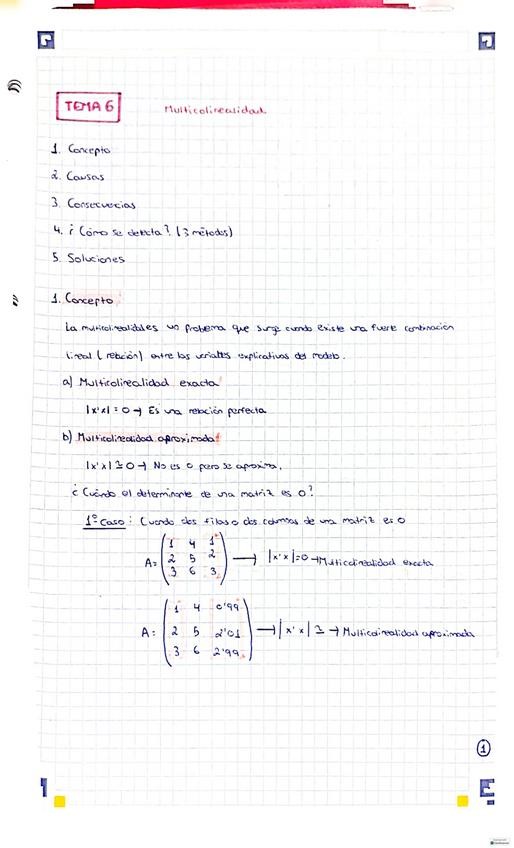 TEMA 6
Multicolinealidad
1. Concepto
2. Causas
3. Consecuencias
4. ¿Cómo se detecta? (3 métodos)
5. Soluciones
1. Concepto
La multicolinealidad es un problema que surge cuando existe una fuerte combinación
lineal (relación) entre las variables explicativas del modelo.
a) Multicolinealidad exacta
|x'x| = 0 → Es una relación perfecta
b) Multicolinealidad aproximada
|x'x| ≅ 0 → No es 0 pero se aproxima.
¿Cuándo el determinante de una matriz es 0?
1º Caso: Cuando dos filas o dos columnas de una matriz es 0
1 4 1
A= 2 5 2 → |x'x|=0 → Multicolinealidad exacta
3 6 3
1 4 0'99
A= 2 5 2'01 → |x'x| ≅ → Multicolinealidad aproximada
3 6 2'99
1